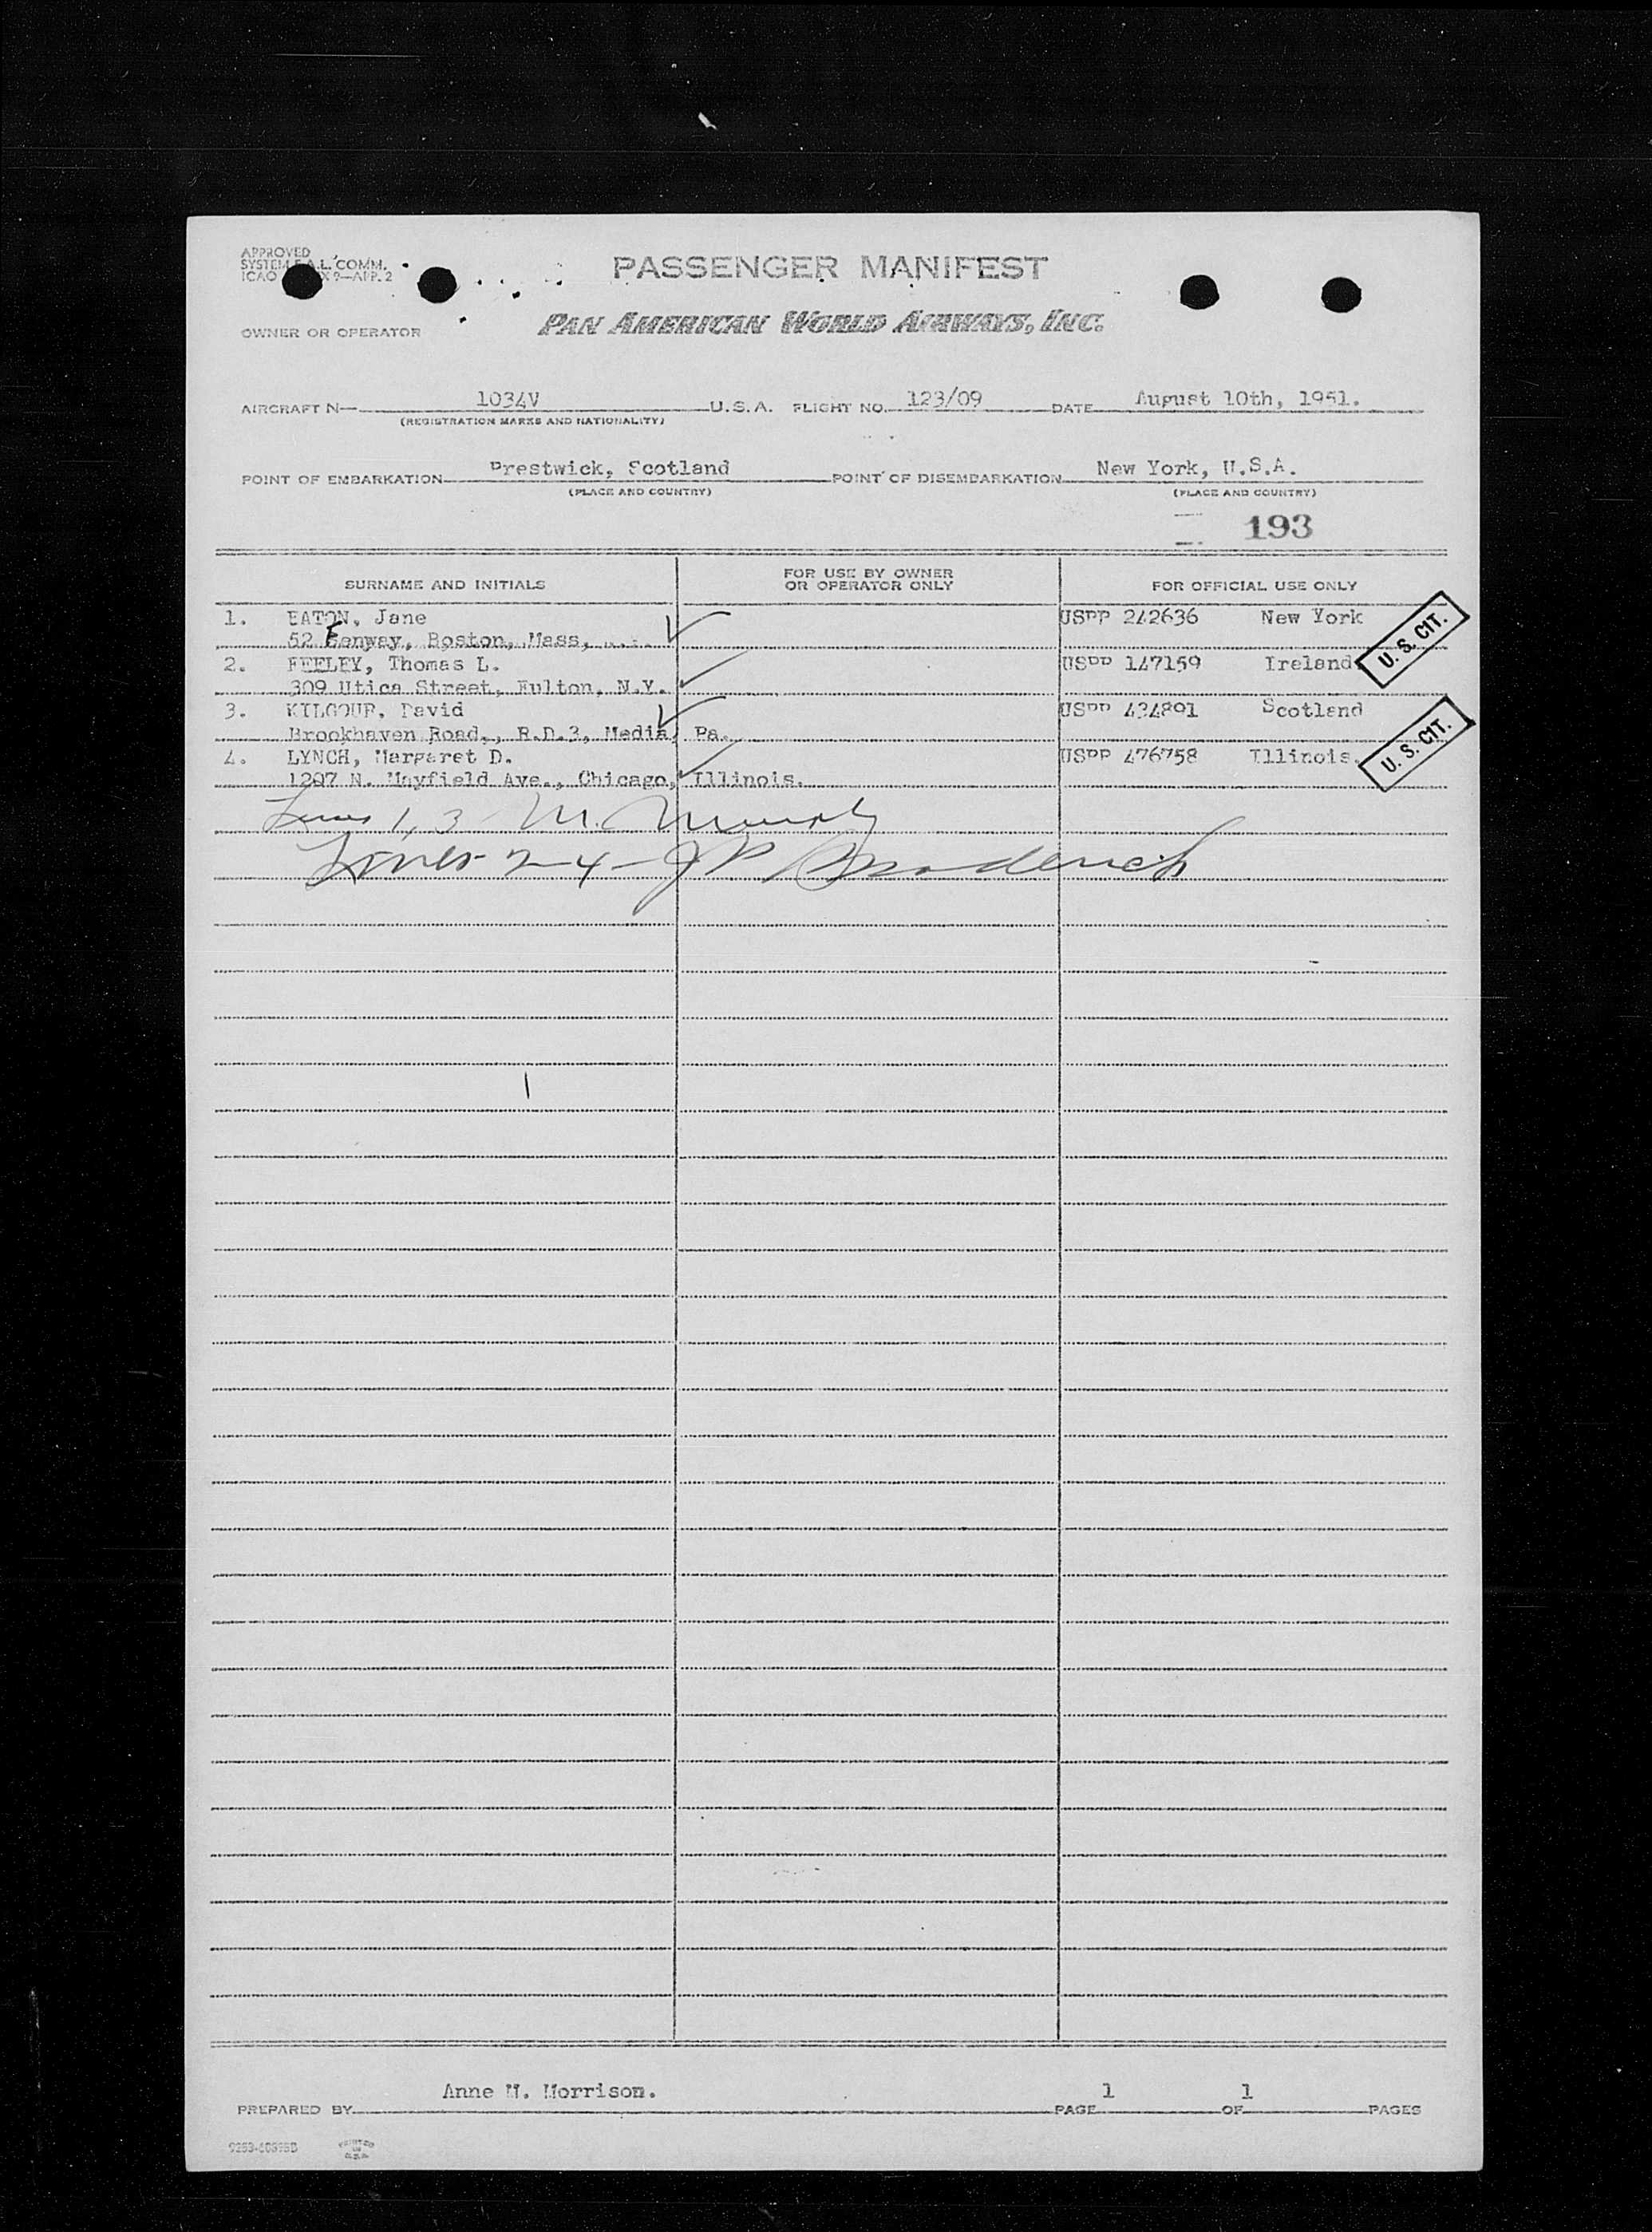 APPROVED
SYSTEM F.A.L. COMM.
ICAO X 9—APP. 2
PASSENGER MANIFEST
OWNER OR OPERATOR
PAN AMERICAN WORLD AIRWAYS, INC.
AIRCRAFT N— 1034V U.S.A. FLIGHT NO. 123/09 DATE August 10th, 1951.
(REGISTRATION MARKS AND NATIONALITY)
POINT OF EMBARKATION Prestwick, Scotland POINT OF DISEMBARKATION New York, U.S.A.
(PLACE AND COUNTRY) (PLACE AND COUNTRY)
193
SURNAME AND INITIALS FOR USE BY OWNER OR OPERATOR ONLY FOR OFFICIAL USE ONLY
1. EATON, Jane USPP 242636 New York
52 Fenway, Boston, Mass, U. S. CIT.
2. FEELEY, Thomas L. USPP 147159 Ireland
309 Utica Street, Fulton, N.Y.
3. KILGOUR, David USPP 434891 Scotland
Brookhaven Road,, R.D.3, Media, Pa. U. S. CIT.
4. LYNCH, Margaret D. USPP 476758 Illinois.
1207 N. Mayfield Ave., Chicago, Illinois.
Lines 1, 3 - M. Murphy
Lines 2-4 - JP Broderick
Anne M. Morrison. 1 1
PREPARED BY PAGE OF PAGES
PRINTED IN U.S.A.